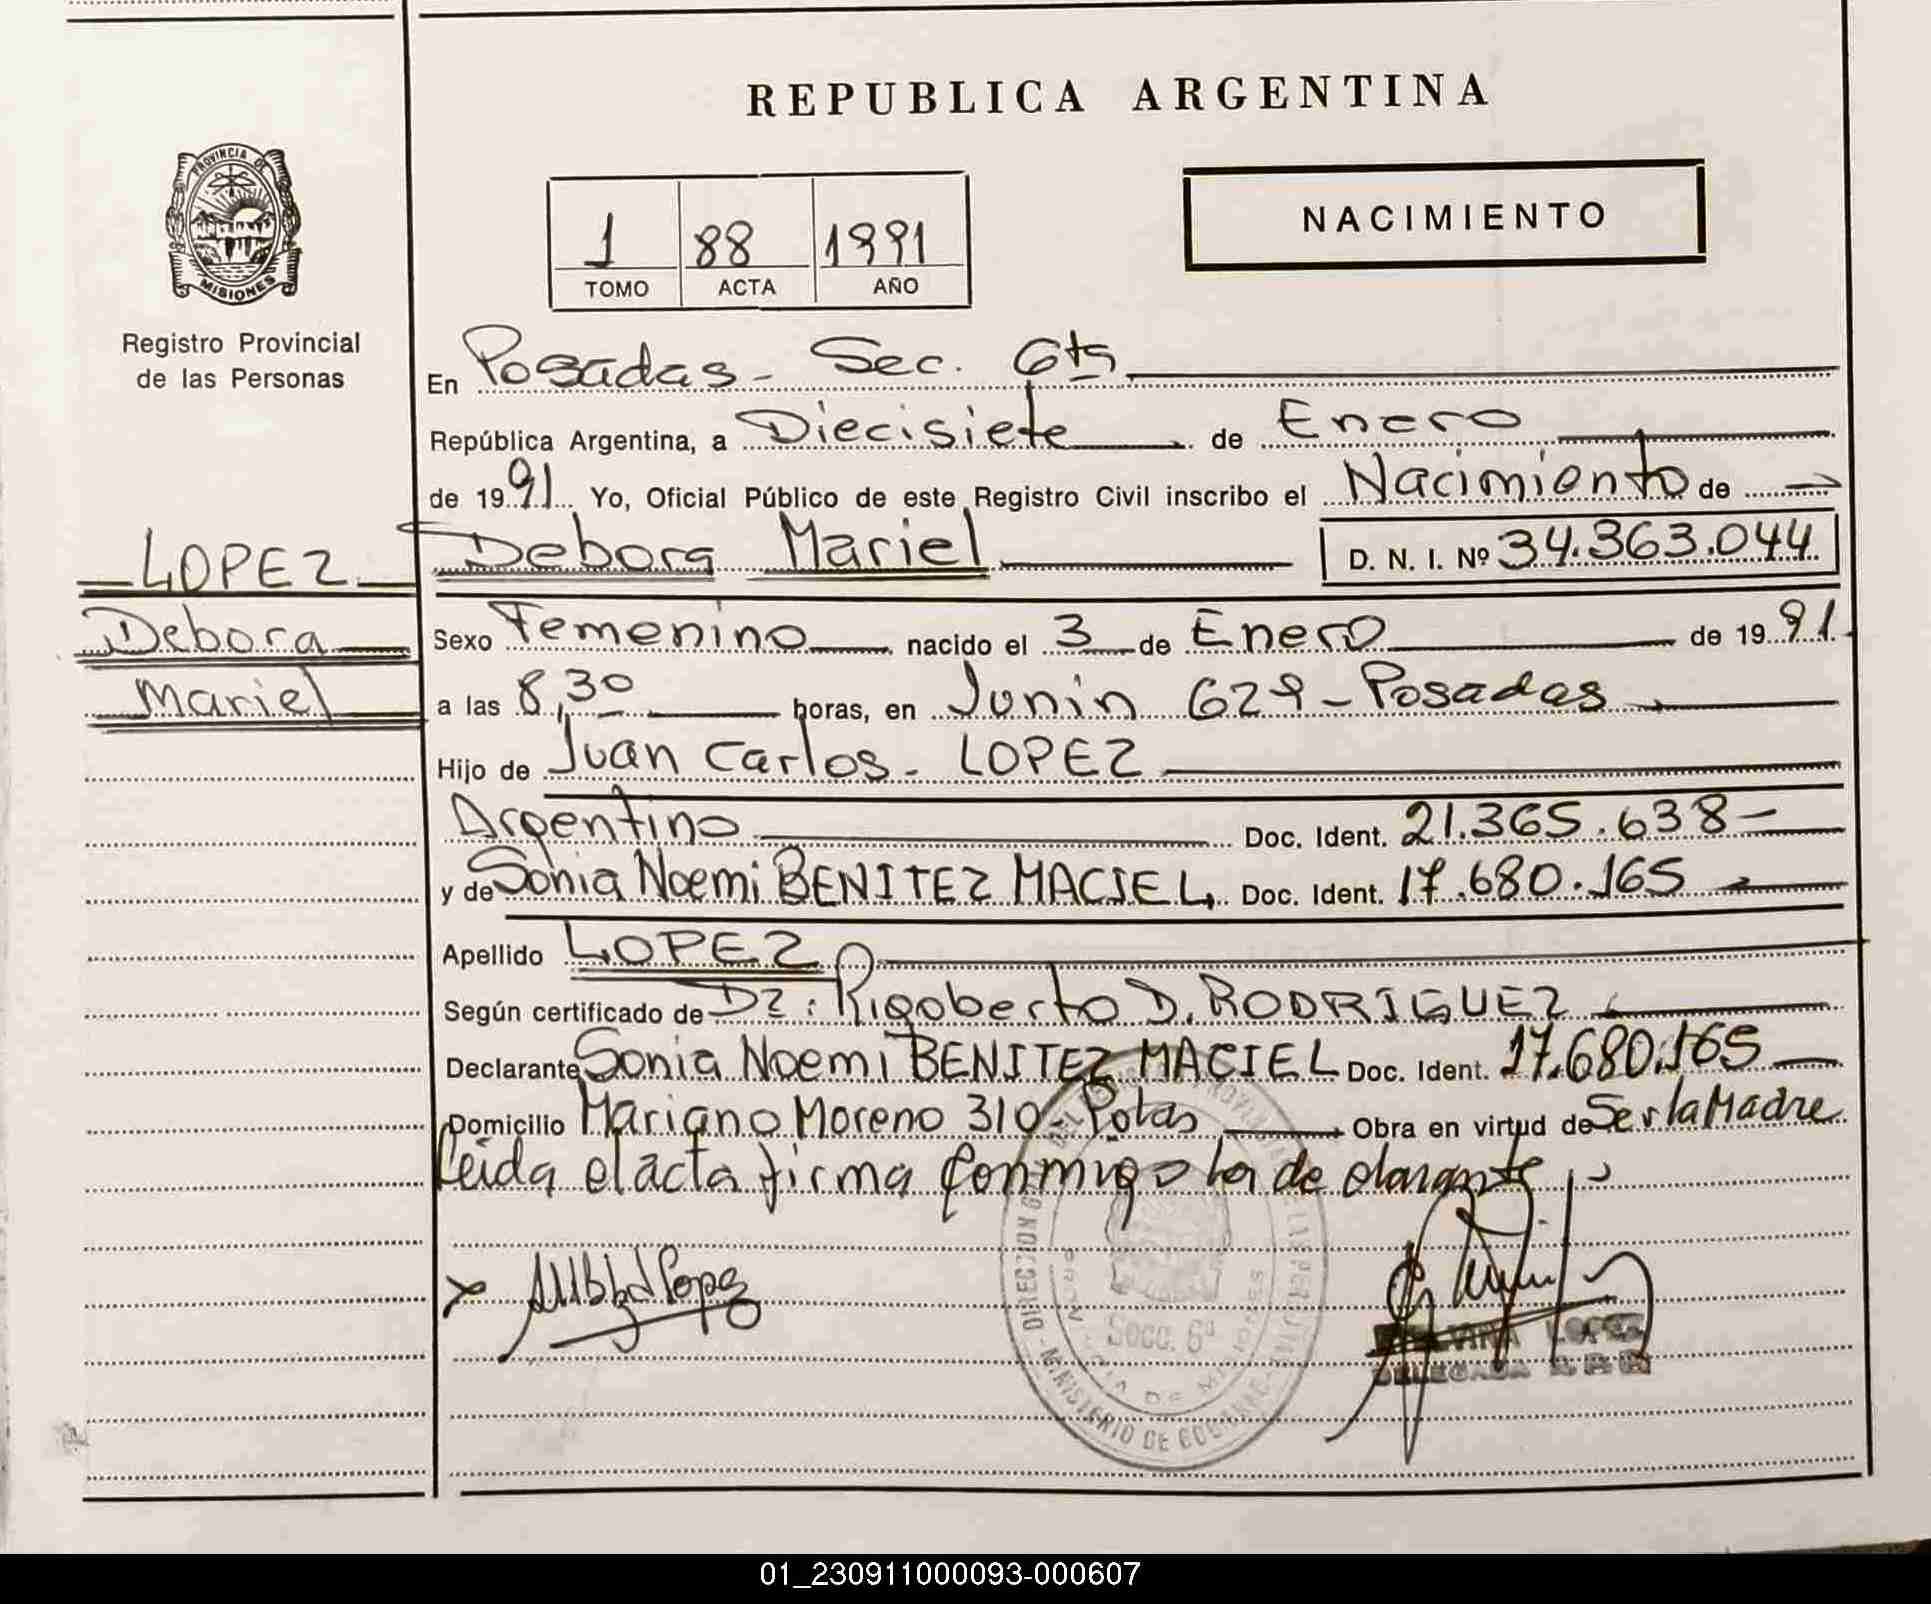 REPUBLICA ARGENTINA
PROVINCIA DE MISIONES
Registro Provincial
de las Personas
NACIMIENTO
1 88 1991
TOMO ACTA AÑO
En Posadas - Sec. 6ta
República Argentina, a Diecisiete de Enero
de 1991 Yo, Oficial Público de este Registro Civil inscribo el Nacimiento de
Debora Mariel D. N. I. Nº 34.363.044
LOPEZ
Debora
Mariel
Sexo Femenino nacido el 3 de Enero de 1991
a las 8,30 horas, en Junin 629 - Posadas
Hijo de Juan Carlos - LOPEZ
Argentino Doc. Ident. 21.365.638 -
y de Sonia Noemi BENITEZ MACIEL Doc. Ident. 17.680.165
Apellido LOPEZ
Según certificado de Dr: Rigoberto D. RODRIGUEZ
Declarante Sonia Noemi BENITEZ MACIEL Doc. Ident. 17.680.165
Domicilio Mariano Moreno 310 - Obra en virtud de Ser la Madre
Leida el acta firma conmigo la declarante
Secc. 6ª
PROVINCIA DE MISIONES
MINISTERIO DE GOBIERNO
LOPEZ
DELEGADA
01_230911000093-000607